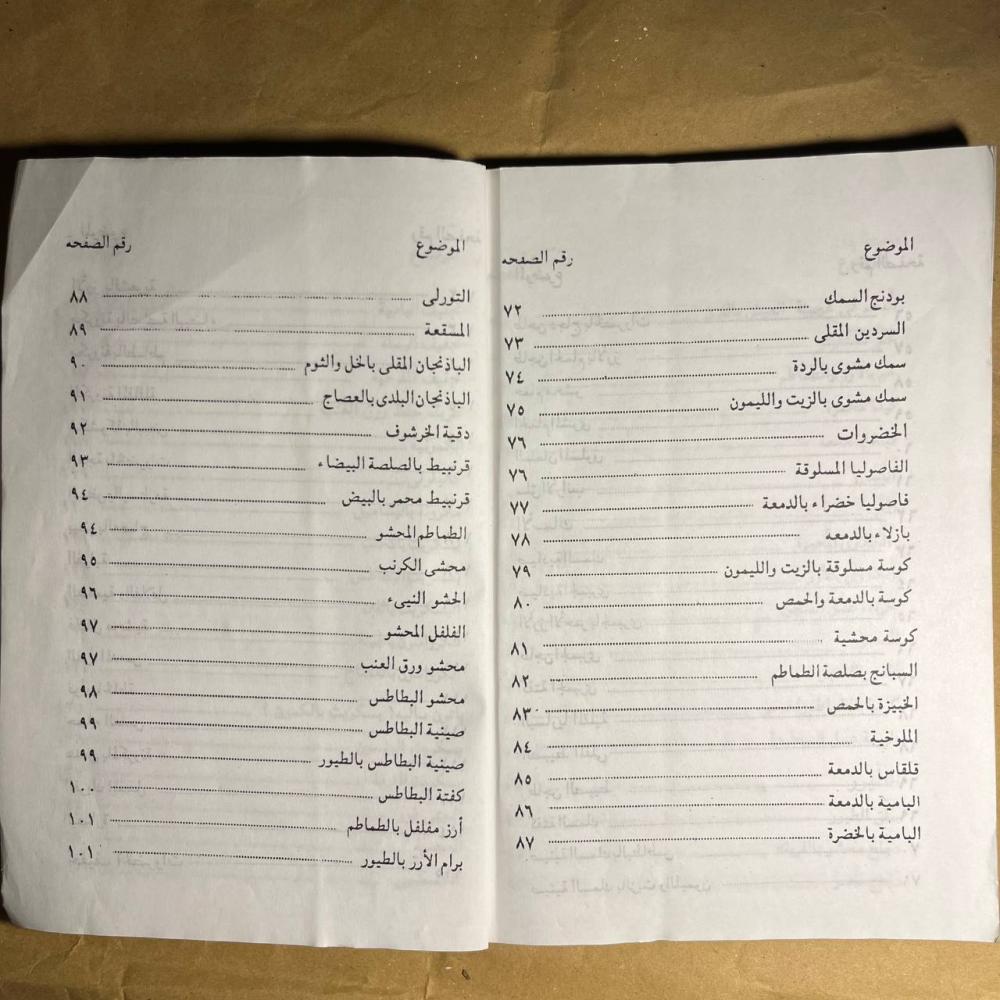 الموضوع رقم الصفحه
بودنج السمك ٧٢
السردين المقلى ٧٣
سمك مشوى بالردة ٧٤
سمك مشوى بالزيت والليمون ٧٥
الخضروات ٧٦
الفاصوليا المسلوقة ٧٦
فاصوليا خضراء بالدمعة ٧٧
بازلاء بالدمعة ٧٨
كوسة مسلوقة بالزيت والليمون ٧٩
كوسة بالدمعة والحمص ٨٠
كوسة محشية ٨١
السبانج بصلصة الطماطم ٨٢
الخبيزة بالحمص ٨٣
الملوخية ٨٤
قلقاس بالدمعة ٨٥
البامية بالدمعة ٨٦
البامية بالخضرة ٨٧
الموضوع رقم الصفحه
التورلى ٨٨
المسقعة ٨٩
الباذنجان المقلى بالخل والثوم ٩٠
الباذنجان البلدى بالعصاج ٩١
دقية الخرشوف ٩٢
قرنبيط بالصلصة البيضاء ٩٣
قرنبيط محمر بالبيض ٩٤
الطماطم المحشو ٩٤
محشى الكرنب ٩٥
الحشو النيىء ٩٦
الفلفل المحشو ٩٧
محشو ورق العنب ٩٧
محشو البطاطس ٩٨
صينية البطاطس ٩٩
صينية البطاطس بالطيور ٩٩
كفتة البطاطس ١٠٠
أرز مفلفل بالطماطم ١٠١
برام الأرز بالطيور ١٠١